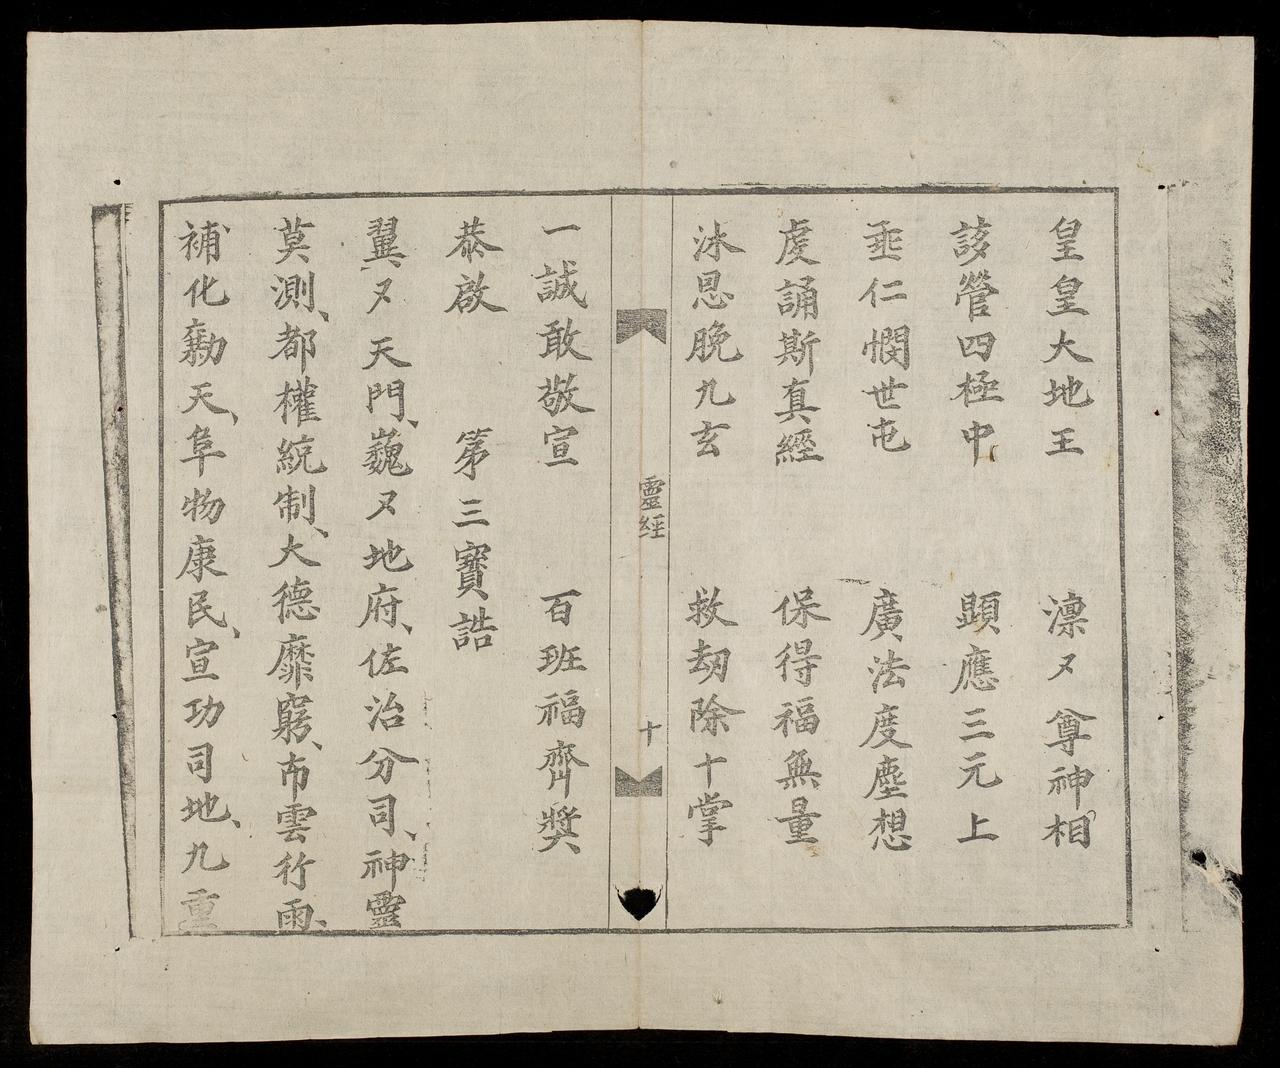 皇皇大地王　凛〻尊神相
該管四極中　顕應三元上
垂仁憫世屯　廣法度塵想
虔誦斯真經　保得福無量
沐恩晚九玄　救劫除十掌
靈經　十
一誠敢敬宣　百班福齊獎
恭啟　第三寶誥
翼〻天門、巍〻地府、佐治分司、神靈
莫測、都權統制、大德靡窮、布雲行雨、
補化勷天、阜物康民、宣功司地、九重